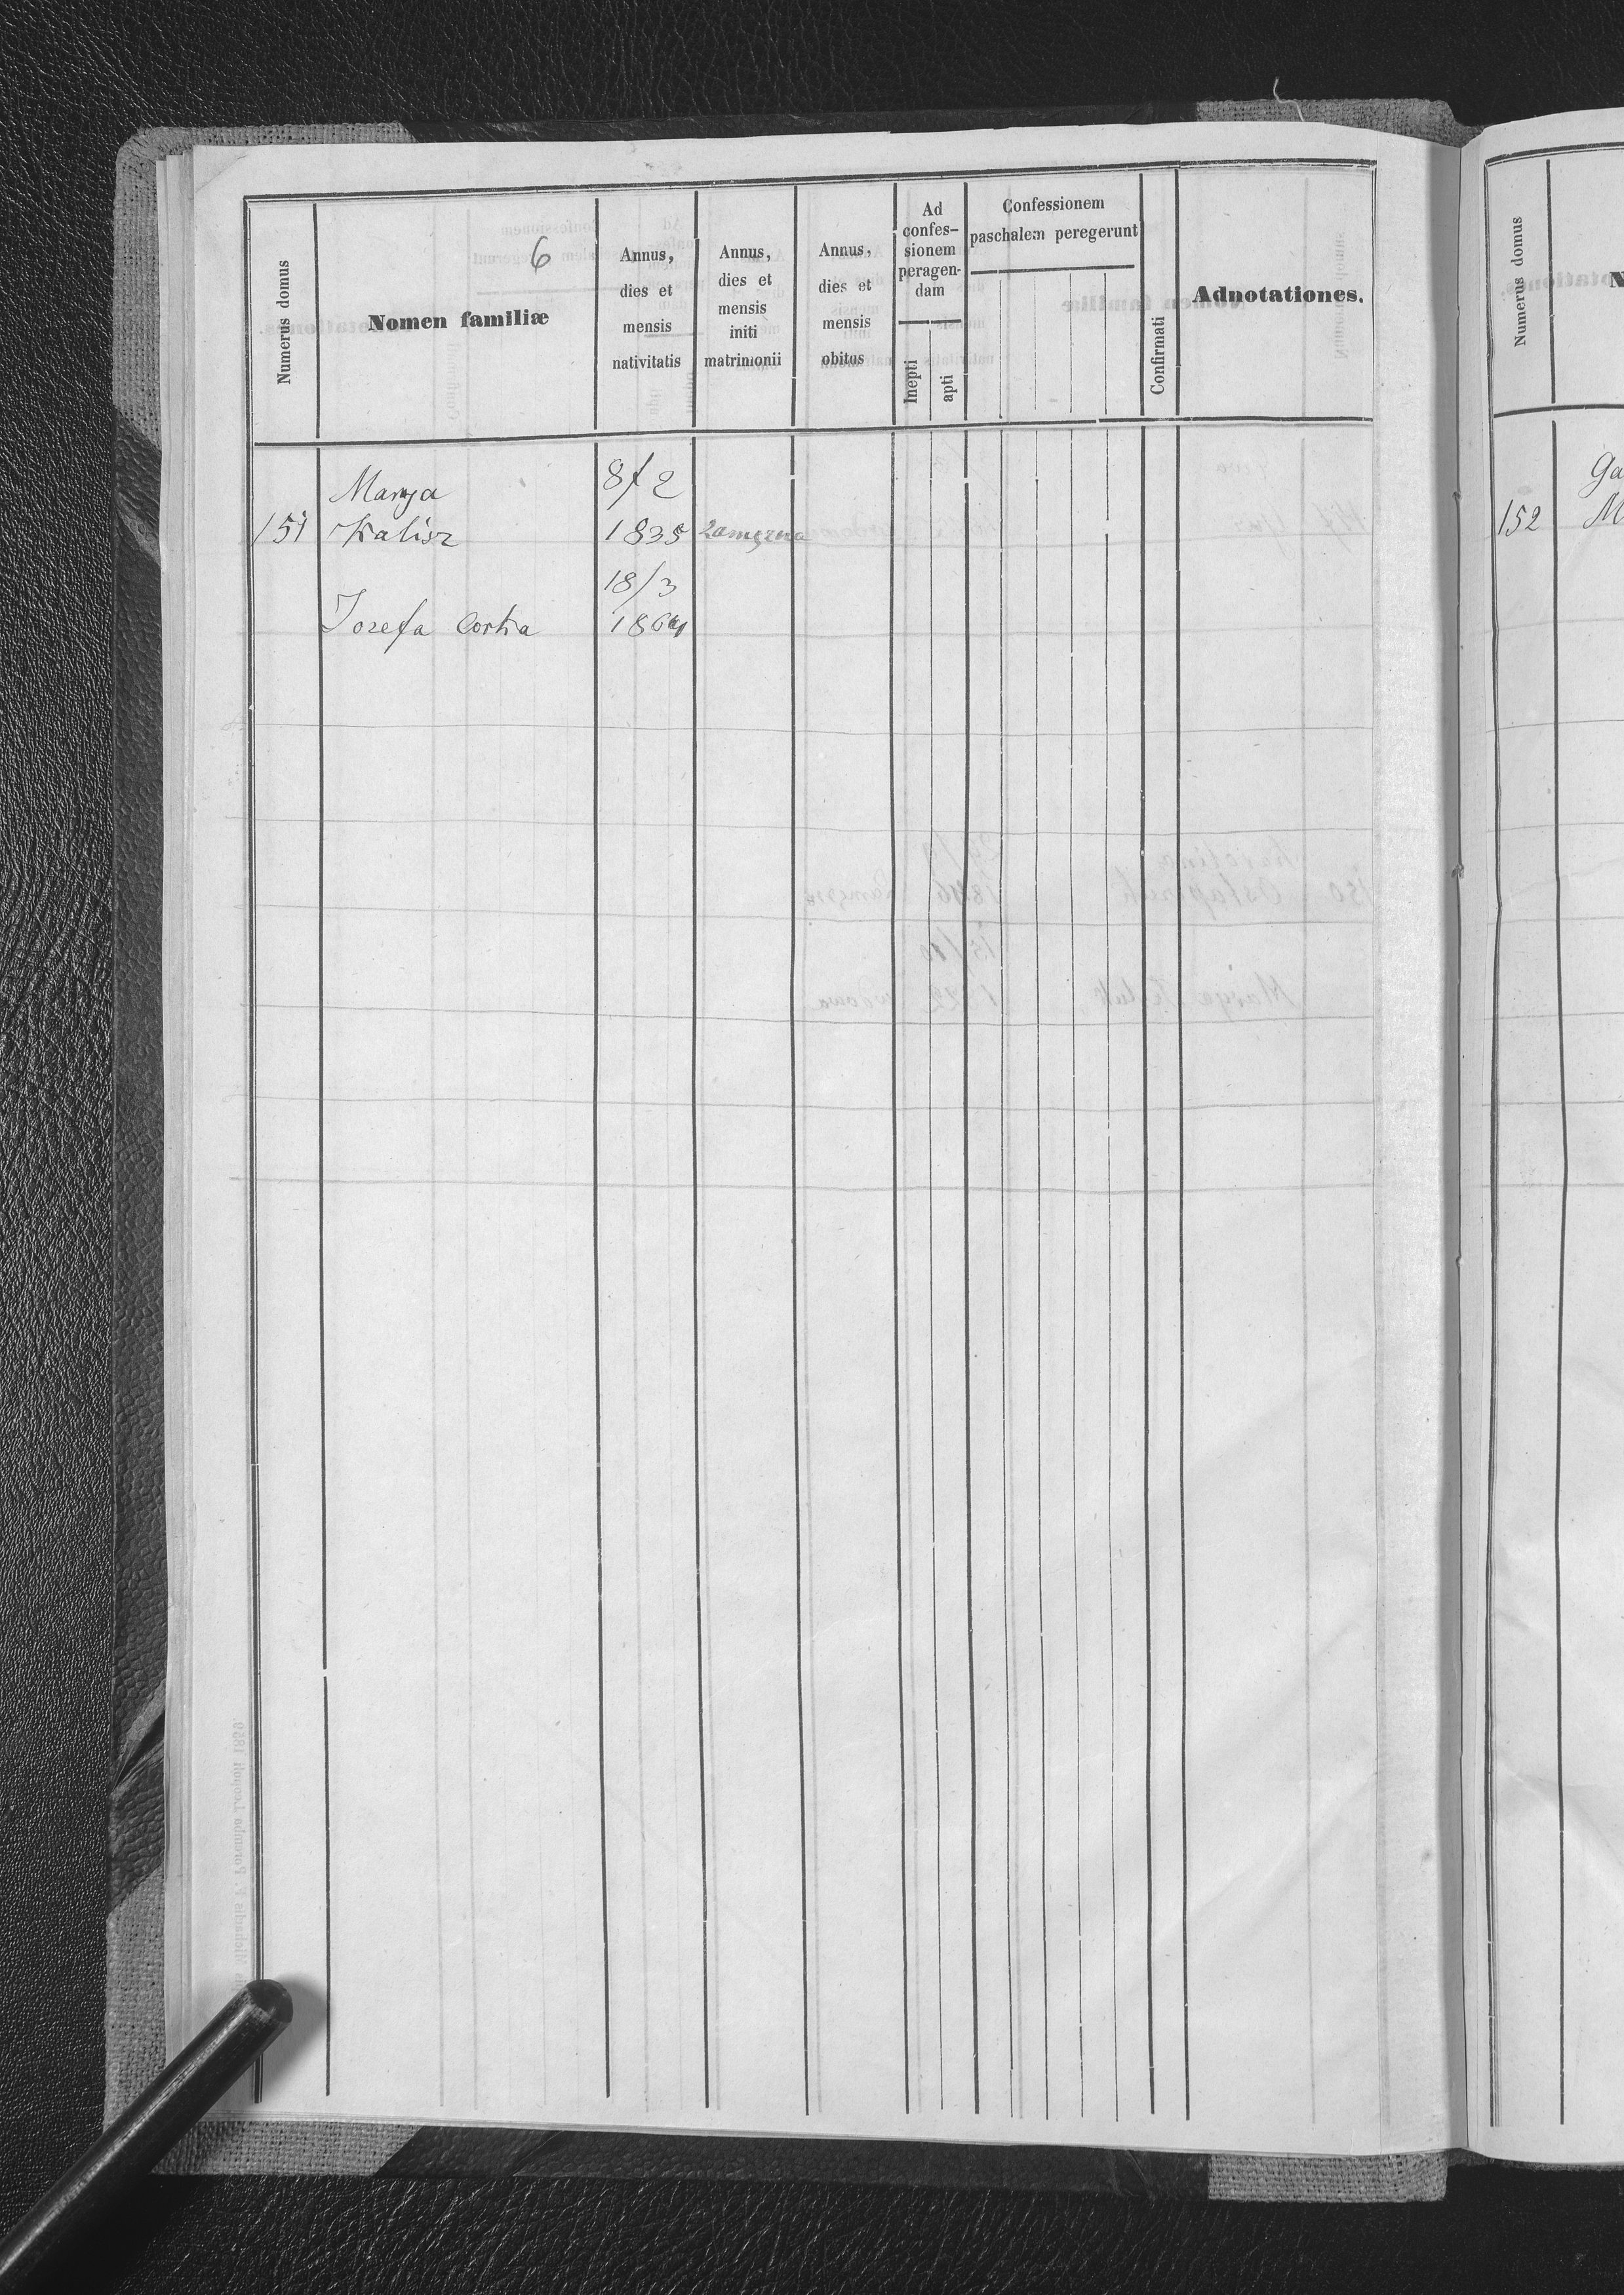 Numerus domus
6
Nomen familiæ
Annus,
dies et
mensis
nativitatis
Annus,
dies et
mensis
initi
matrimonii
Annus,
dies et
mensis
obitus
Ad
confes-
sionem
peragen-
dam
Inepti
apti
Confessionem
paschalem peregerunt
Confirmati
Adnotationes.
Marya 8/2
151 Kalisz 1835 zamężna
18/3
Jozefa Corka 1864
Numerus domus
N
Ga
152 M